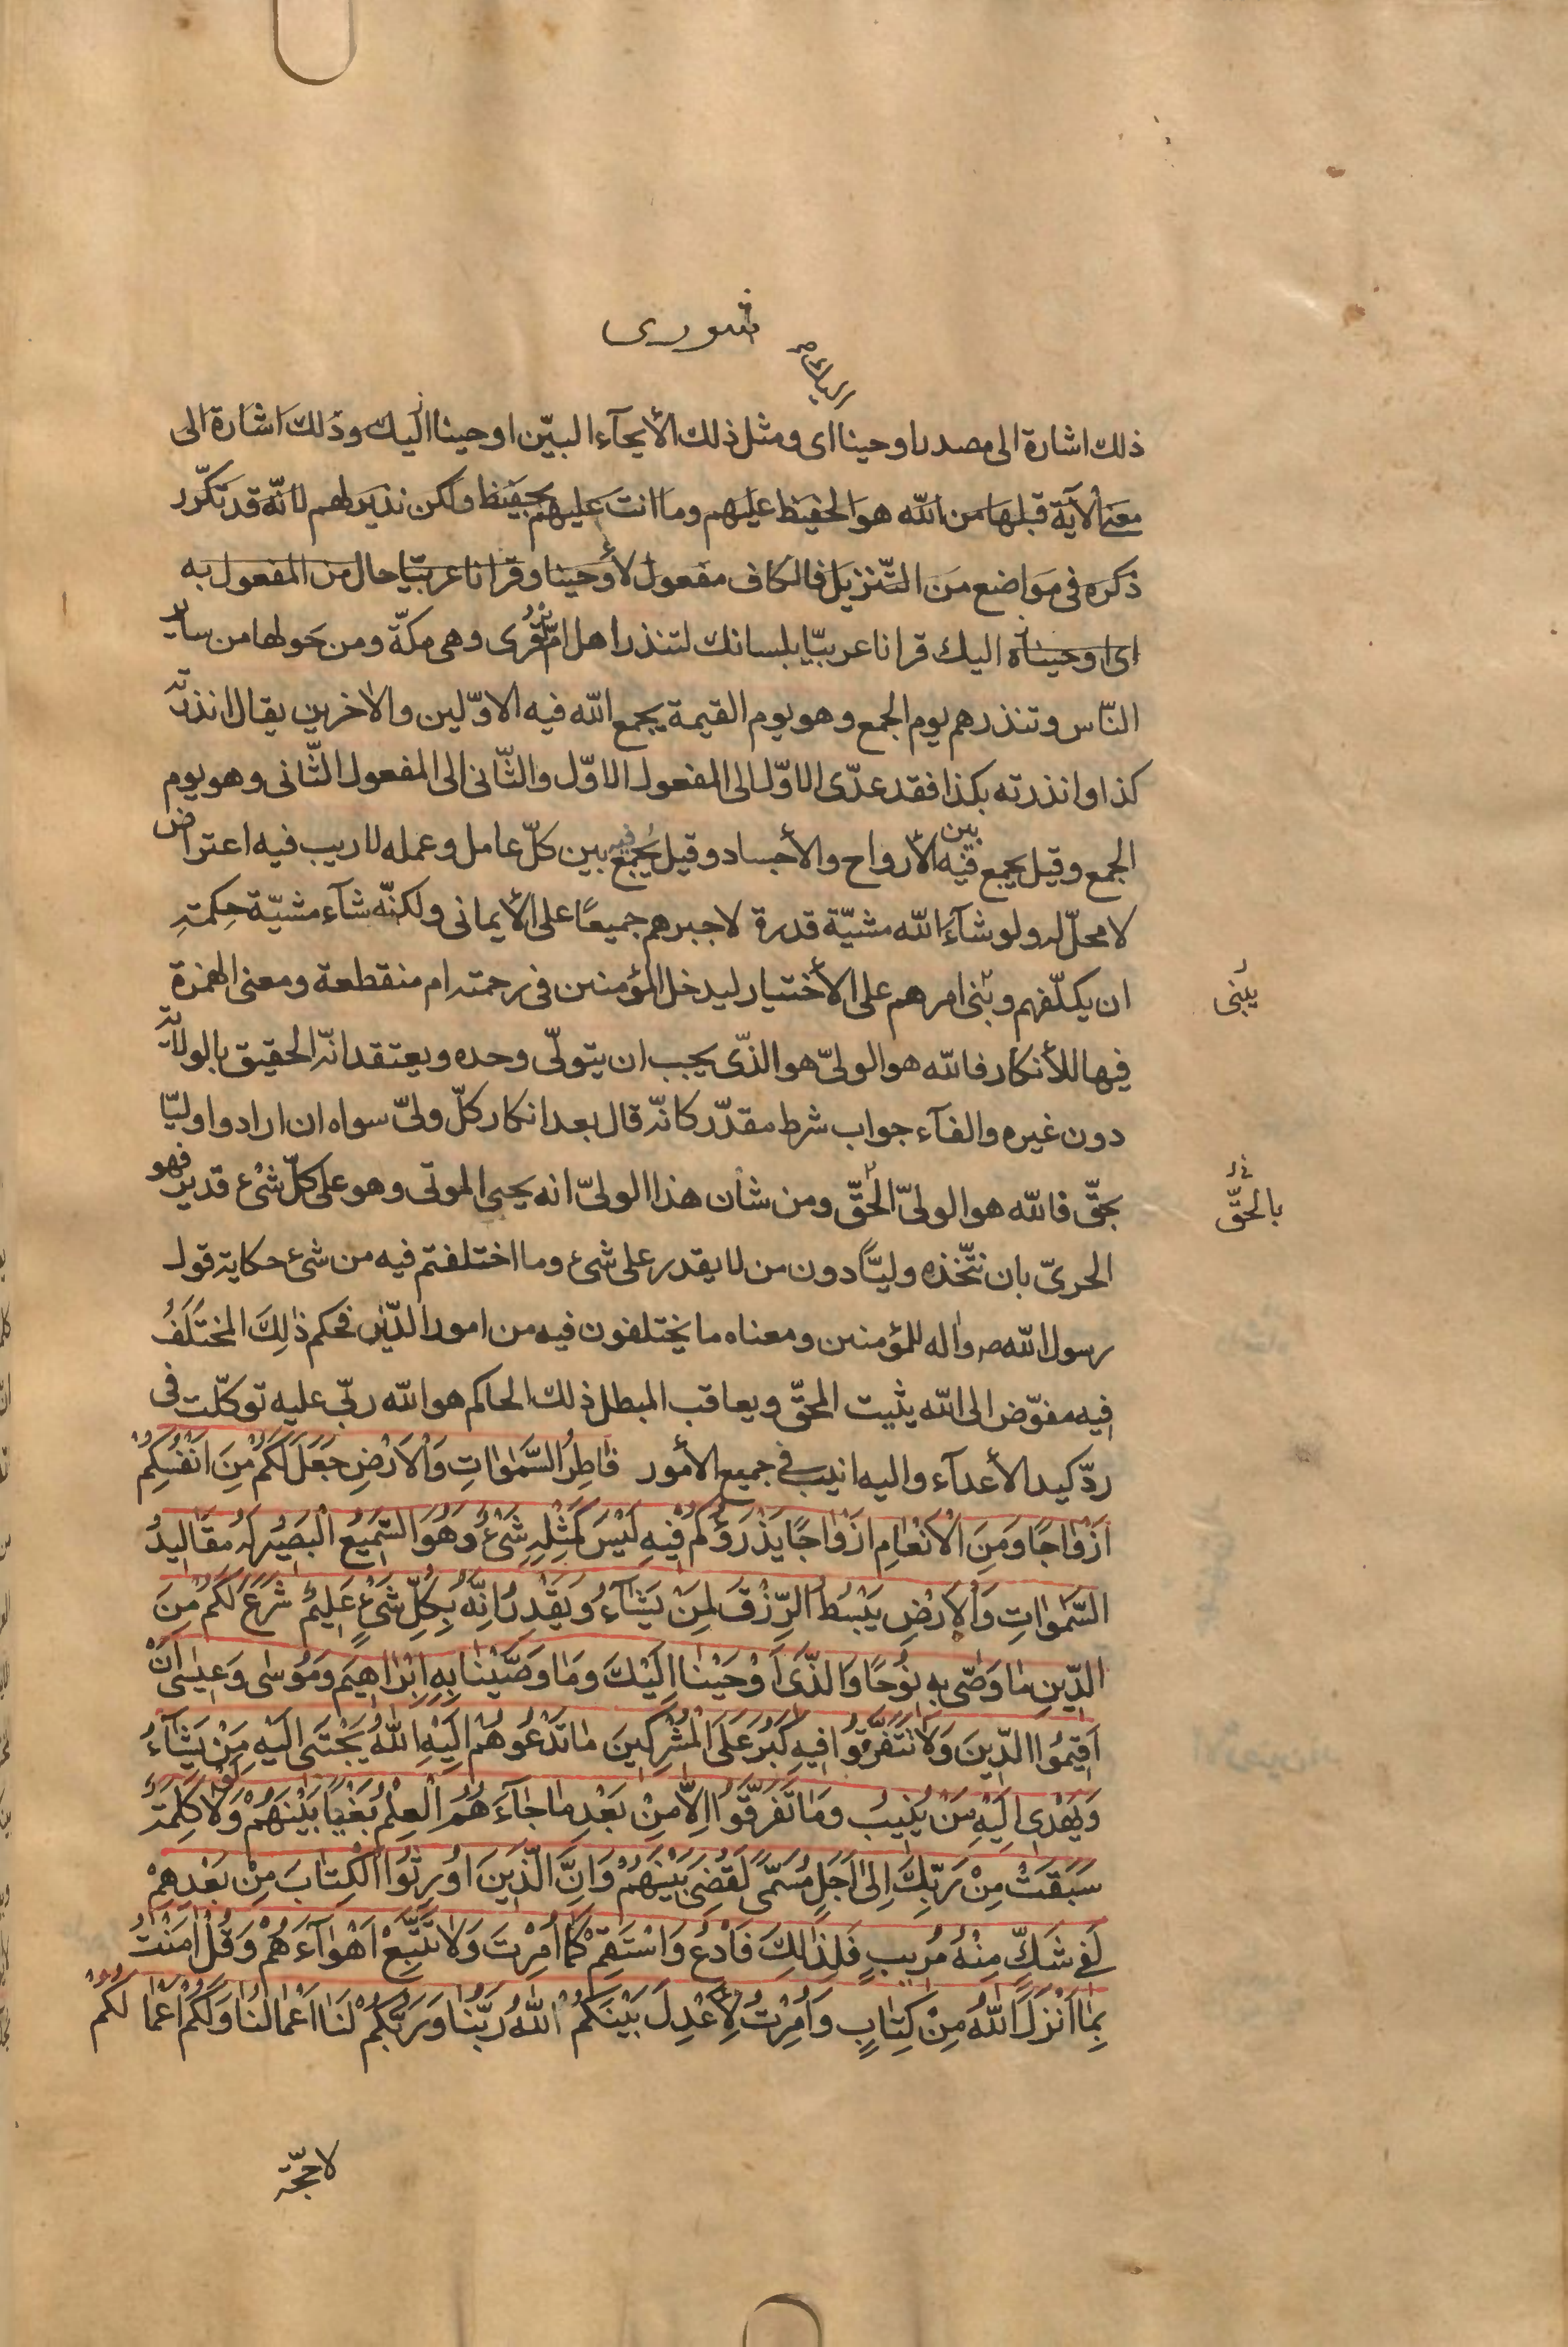 شورى
اليك صح
ذلك اشارة الى مصدر اوحينا اى ومثل ذلك الأيحآء البيّن اوحينا اليك وذلك اشارة الى
معنى الآية قبلها من انّ الله هو الحفيظ عليهم وما انت عليهم بحفيظ ولكن نذير لهم لانّه قد تكرّر
ذكره فى مواضع من التّنزيل فالكاف مفعول لأوحينا وقرانا عربيّا حال من المفعول به
اى اوحيناه اليك قرانا عربيّا بلسانك لتنذر اهل امّ القرى وهى مكّة ومن حولها من ساير
النّاس وتنذرهم يوم الجمع وهو يوم القيمة يجمع الله فيه الاوّلين والاخرين يقال انذرته
كذا وانذرته بكذا فقد عدّى الاوّل الى المفعول الاوّل والثّانى الى المفعول الثّانى وهو يوم
الجمع وقيل يجمع فيه بين الأرواح والأجساد وقيل يجمع فيه بين كلّ عامل وعمله لا ريب فيه اعتراض
لا محلّ له ولو شآء الله مشيّة قدرة لاجبرهم جميعًا على الأيمانى ولكنّه شآء مشيّة حكمته
ان يكلّفهم وبنى امرهم على الأختيار ليدخل المؤمنين فى رحمته ام منقطعة ومعنى الهمزة
يبنى
فيها للأنكار فالله هو الولىّ هو الذّى يجب ان يتولّى وحده ويعتقد انّه الحقيق بالولاية
دون غيره والفآء جواب شرط مقدّر كانّه قال بعد انكار كلّ ولىّ سواه ان ارادوا وليّا
بحقّ فالله هو الولىّ الحقّ ومن شأن هذا الولىّ انه يحيى الموتى وهو على كلّ شىء قدير فهو
بالحقّ
الحرىّ بان نتّخذه وليًّا دون من لا يقدر على شىء وما اختلفتم فيه من شىء حكاية قول
رسول الله ص واله للمؤمنين ومعناه ما يختلفون فيه من امور الدّين فحكم ذلِكَ المختَلَفُ
فيه مفوّض الى الله يثبت المحقّ ويعاقب المبطل ذلك الحاكم هو الله ربّى عليه توكّلت فى
ردّ كيد الأعدآء واليه انيب فى جميع الأمور فَاطِرُ السَّمٰوٰاتِ وَالْاَرْضِ جَعَلَ لَكُمْ مِنَ اَنْفُسِكُمْ
اَزْوٰاجًا وَمِنَ الْاَنْعٰامِ اَزْوٰاجًا يَذْرَؤُكُمْ فيهِ لَيْسَ كَمِثْلِهِ شَىْءٌ وَهُوَ السَّميعُ الْبَصيرُ لَهُ مَقٰاليدُ
السَّمٰوٰاتِ وَالْاَرْضِ يَبْسُطُ الرِّزْقَ لِمَنْ يَشٰآءُ وَيَقْدِرُ اِنَّهُ بِكُلِّ شَىْءٍ عَليمٌ شَرَعَ لَكُمْ مِنَ
الدّينِ مٰا وَصّى بِهِ نُوحًا وَالَّذى اَوْحَيْنٰا اِلَيْكَ وَمٰا وَصَّيْنٰا بِهِ اِبْرٰاهيمَ وَمُوسٰى وَعيسٰى اَنْ
اَقيمُوا الدّينَ وَلٰا تَتَفَرَّقُوا فيهِ كَبُرَ عَلَى الْمُشْرِكينَ مٰا تَدْعُوهُمْ اِلَيْهِ اَللّٰهُ يَجْتَبى اِلَيْهِ مَنْ يَشٰآءُ
وَيَهْدى اِلَيْهِ مَنْ يُنيبُ وَمٰا تَفَرَّقُوا اِلّٰا مِنْ بَعْدِ مٰا جٰآءَهُمُ الْعِلْمُ بَغْيًا بَيْنَهُمْ وَلَوْلٰا كَلِمَةٌ
سَبَقَتْ مِنْ رَبِّكَ اِلٰى اَجَلٍ مُسَمًّى لَقُضِىَ بَيْنَهُمْ وَاِنَّ الَّذينَ اُورِثُوا الْكِتٰابَ مِنْ بَعْدِهِمْ
لَفى شَكٍّ مِنْهُ مُريبٍ فَلِذٰلِكَ فَادْعُ وَاسْتَقِمْ كَمٰا اُمِرْتَ وَلٰا تَتَّبِعْ اَهْوٰآءَهُمْ وَقُلْ اٰمَنْتُ
بِمٰا اَنْزَلَ اللّٰهُ مِنْ كِتٰابٍ وَاُمِرْتُ لِاَعْدِلَ بَيْنَكُمْ اَللّٰهُ رَبُّنٰا وَرَبُّكُمْ لَنٰا اَعْمٰالُنٰا وَلَكُمْ اَعْمٰالُكُمْ
لا حجّة